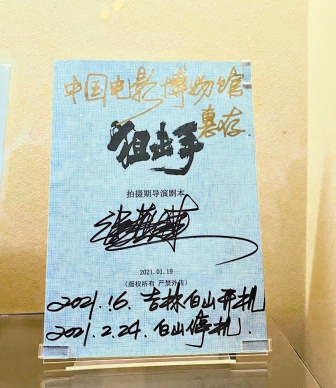 中国电影博物馆
惠存
狙击手
拍摄期导演剧本
2021.01.19
(版权所有 严禁外传)
2021.1.6. 吉林白山开机
2021.2.24. 白山停机.